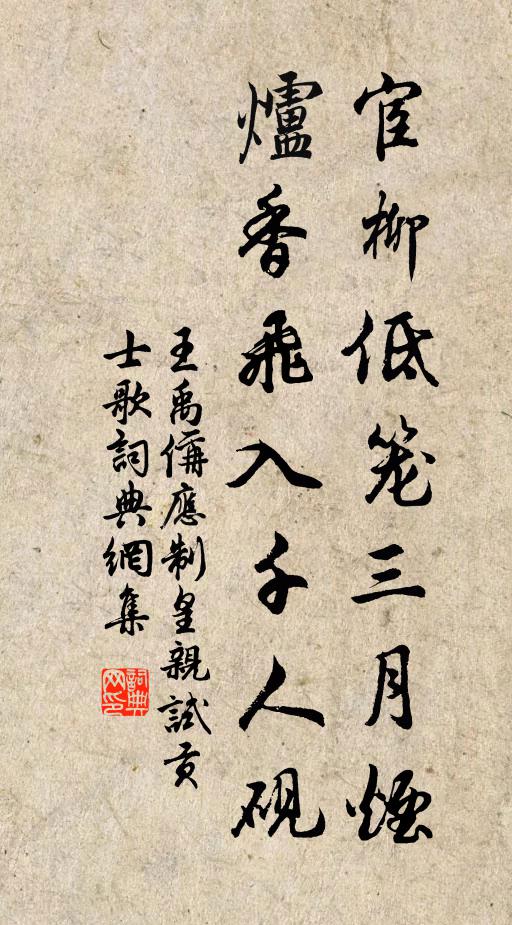 宦柳低笼三月煙
爐香飛入千人硯
王禹偁應制皇親試貢
士歌詞典網集
詞典
网印